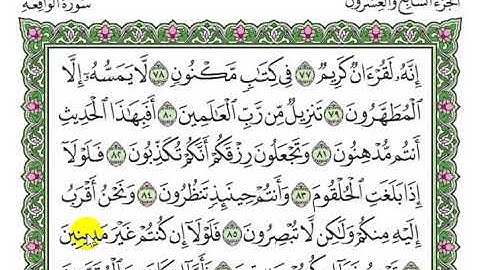 سورة الواقعة الجزء السابع والعشرون
إِنَّهُۥ لَقُرْءَانٌ كَرِيمٌ ٧٧ فِى كِتَٰبٍ مَّكْنُونٍ ٧٨ لَّا يَمَسُّهُۥٓ إِلَّا
ٱلْمُطَهَّرُونَ ٧٩ تَنزِيلٌ مِّن رَّبِّ ٱلْعَٰلَمِينَ ٨٠ أَفَبِهَٰذَا ٱلْحَدِيثِ
أَنتُم مُّدْهِنُونَ ٨١ وَتَجْعَلُونَ رِزْقَكُمْ أَنَّكُمْ تُكَذِّبُونَ ٨٢ فَلَوْلَآ
إِذَا بَلَغَتِ ٱلْحُلْقُومَ ٨٣ وَأَنتُمْ حِينَئِذٍ تَنظُرُونَ ٨٤ وَنَحْنُ أَقْرَبُ
إِلَيْهِ مِنكُمْ وَلَٰكِن لَّا تُبْصِرُونَ ٨٥ فَلَوْلَآ إِن كُنتُمْ غَيْرَ مَدِينِينَ